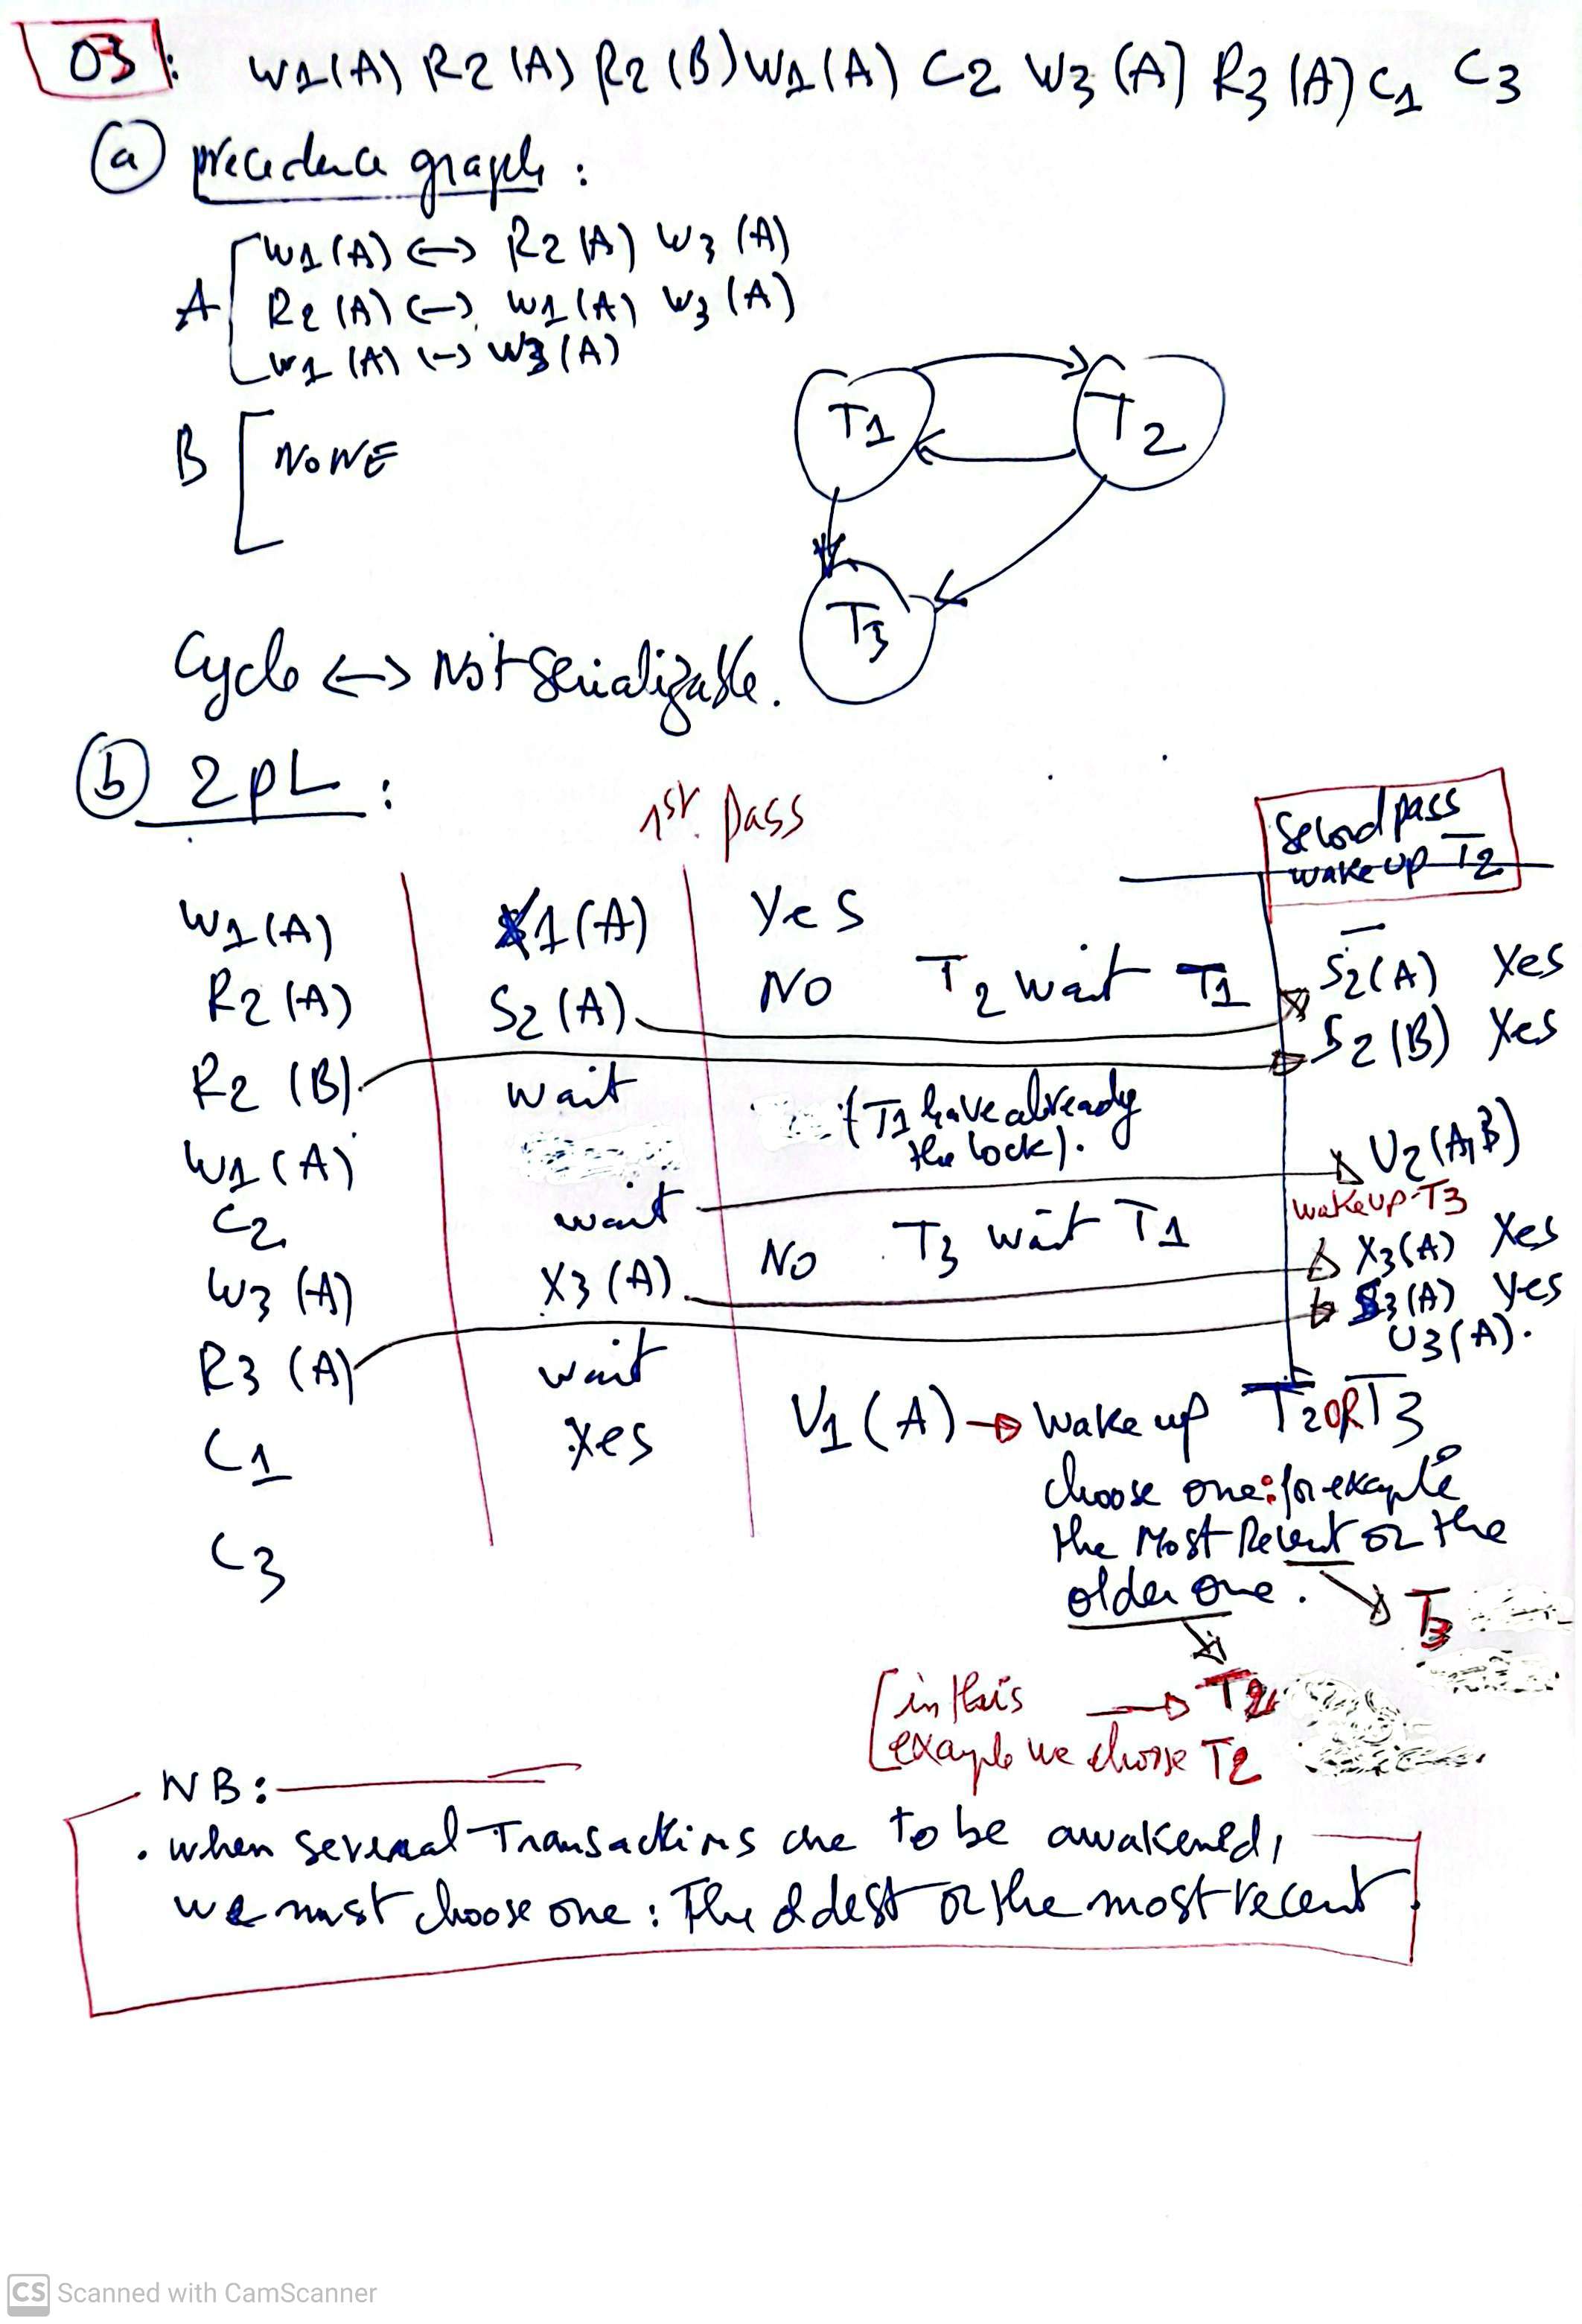 03: W1(A) R2(A) R2(B) W1(A) C2 W3(A) R3(A) C1 C3
(a) precedence graph :
A [ W1(A) <-> R2(A) W3(A)
R2(A) <-> W1(A) W3(A)
W1(A) <-> W3(A)
B [ NONE
T1 T2
T3
Cycle <-> Not Serializable.
(b) 2PL :
1st pass
Second pass
wake up T2
W1(A) X1(A) Yes
R2(A) S2(A) NO T2 wait T1 S2(A) Yes
R2(B) wait S2(B) Yes
W1(A) (T1 have already
the lock).
U2(A,B)
C2 wait wake up T3
W3(A) X3(A) NO T3 wait T1 X3(A) Yes
S3(A) Yes
R3(A) wait U3(A).
C1 Yes U1(A) → wake up T2 OR T3
choose one: for example
the Most Recent or the
C3
older one. T3
[in this → T2
example we choose T2
NB:
. when several Transactions are to be awakened,
we must choose one : The oldest or the most recent.
CS Scanned with CamScanner